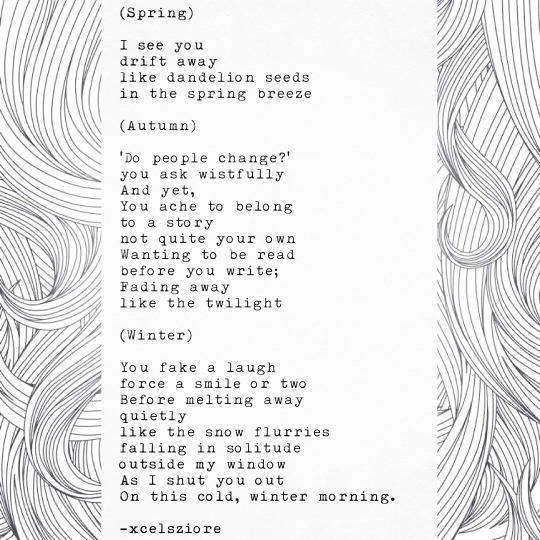 (Spring)
I see you
drift away
like dandelion seeds
in the spring breeze
(Autumn)
'Do people change?'
you ask wistfully
And yet,
You ache to belong
to a story
not quite your own
Wanting to be read
before you write;
Fading away
like the twilight
(Winter)
You fake a laugh
force a smile or two
Before melting away
quietly
like the snow flurries
falling in solitude
outside my window
As I shut you out
On this cold, winter morning.
-xcelsziore